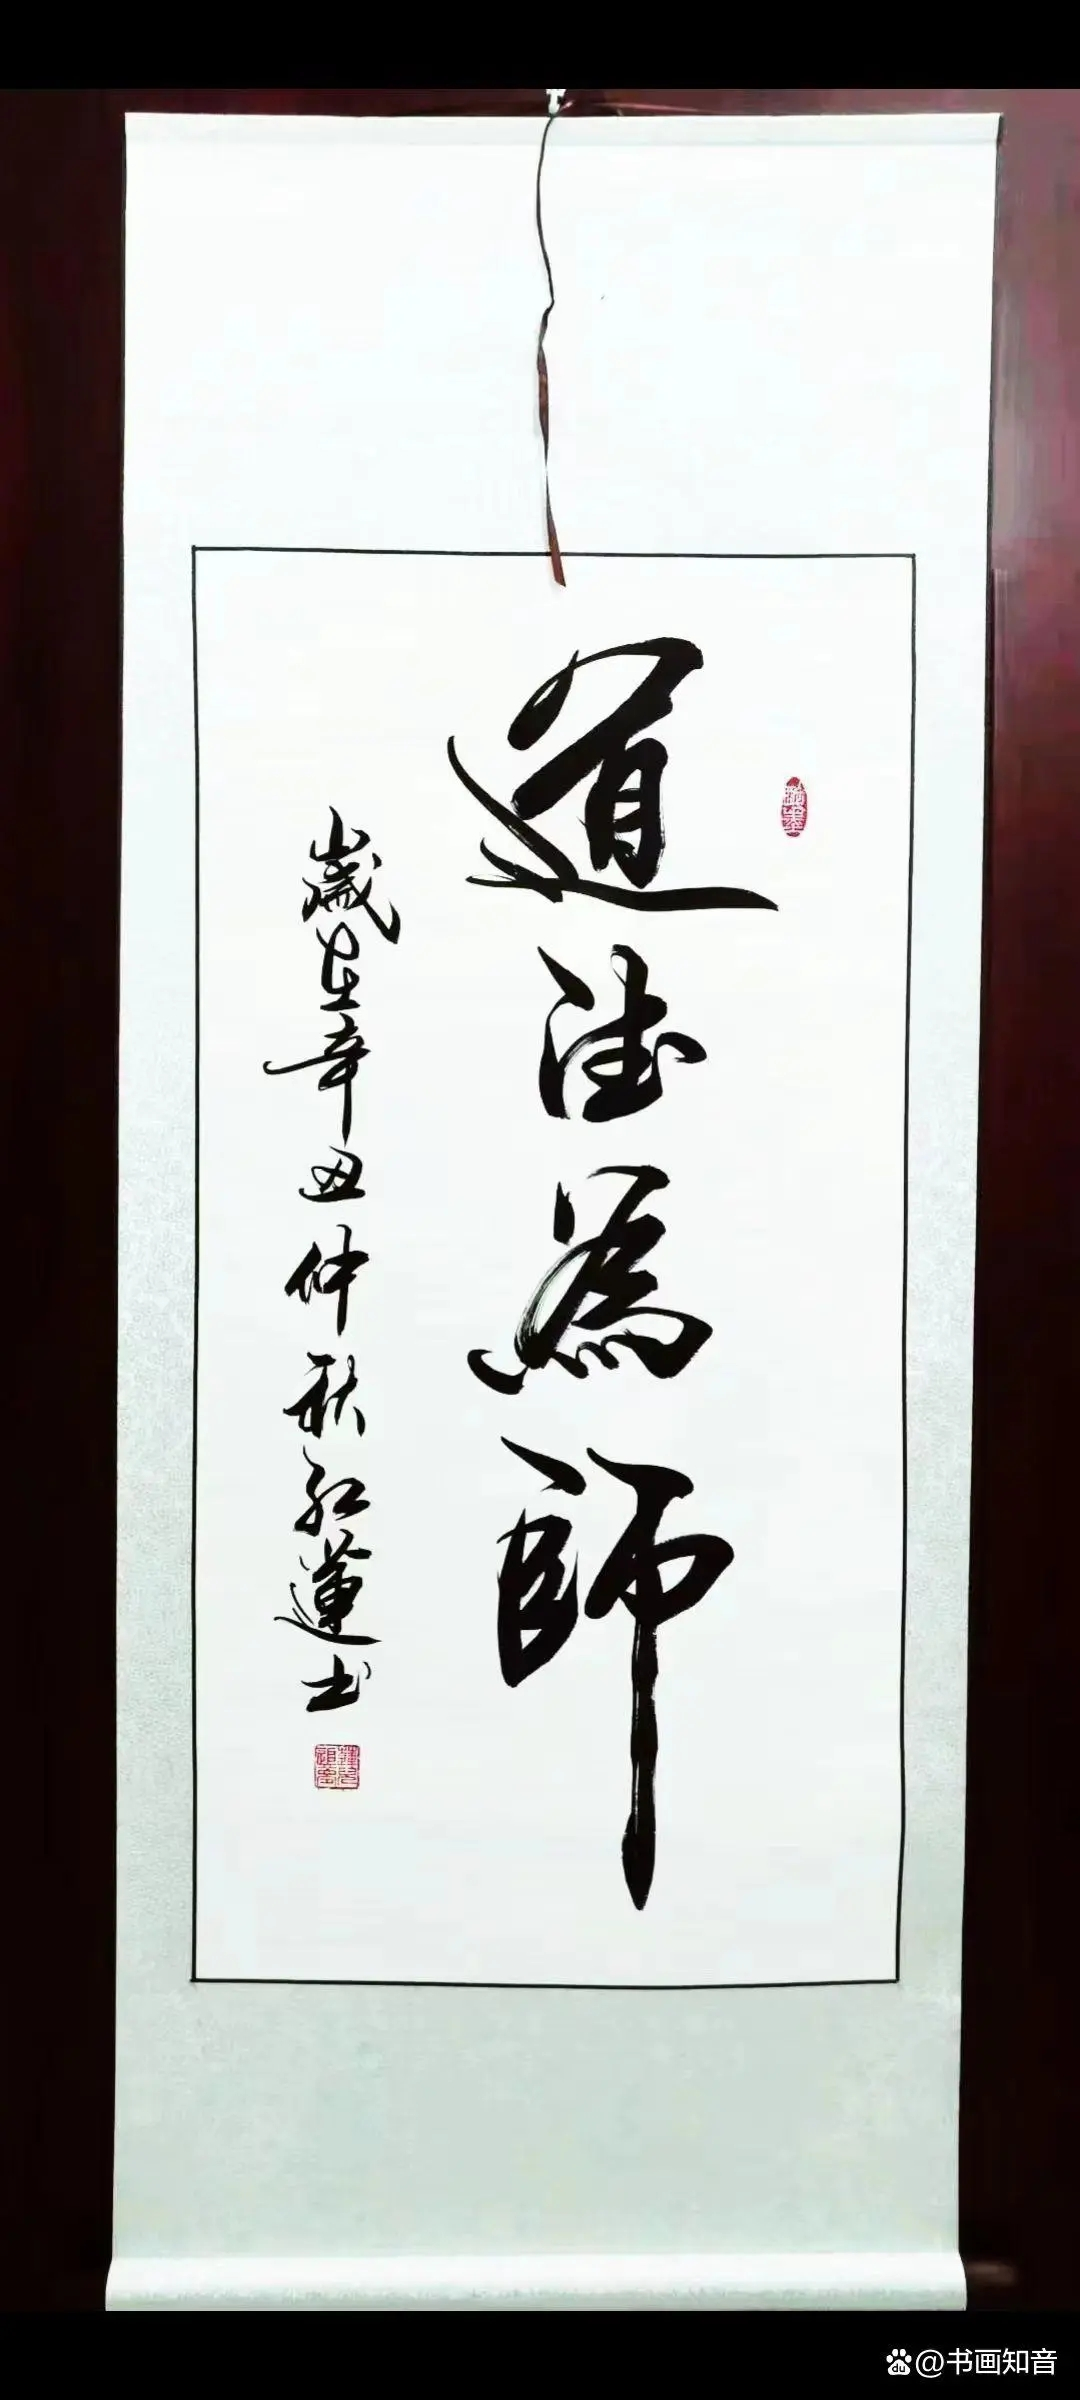 道法為師
歲在辛丑仲秋紅蓮书
@书画知音